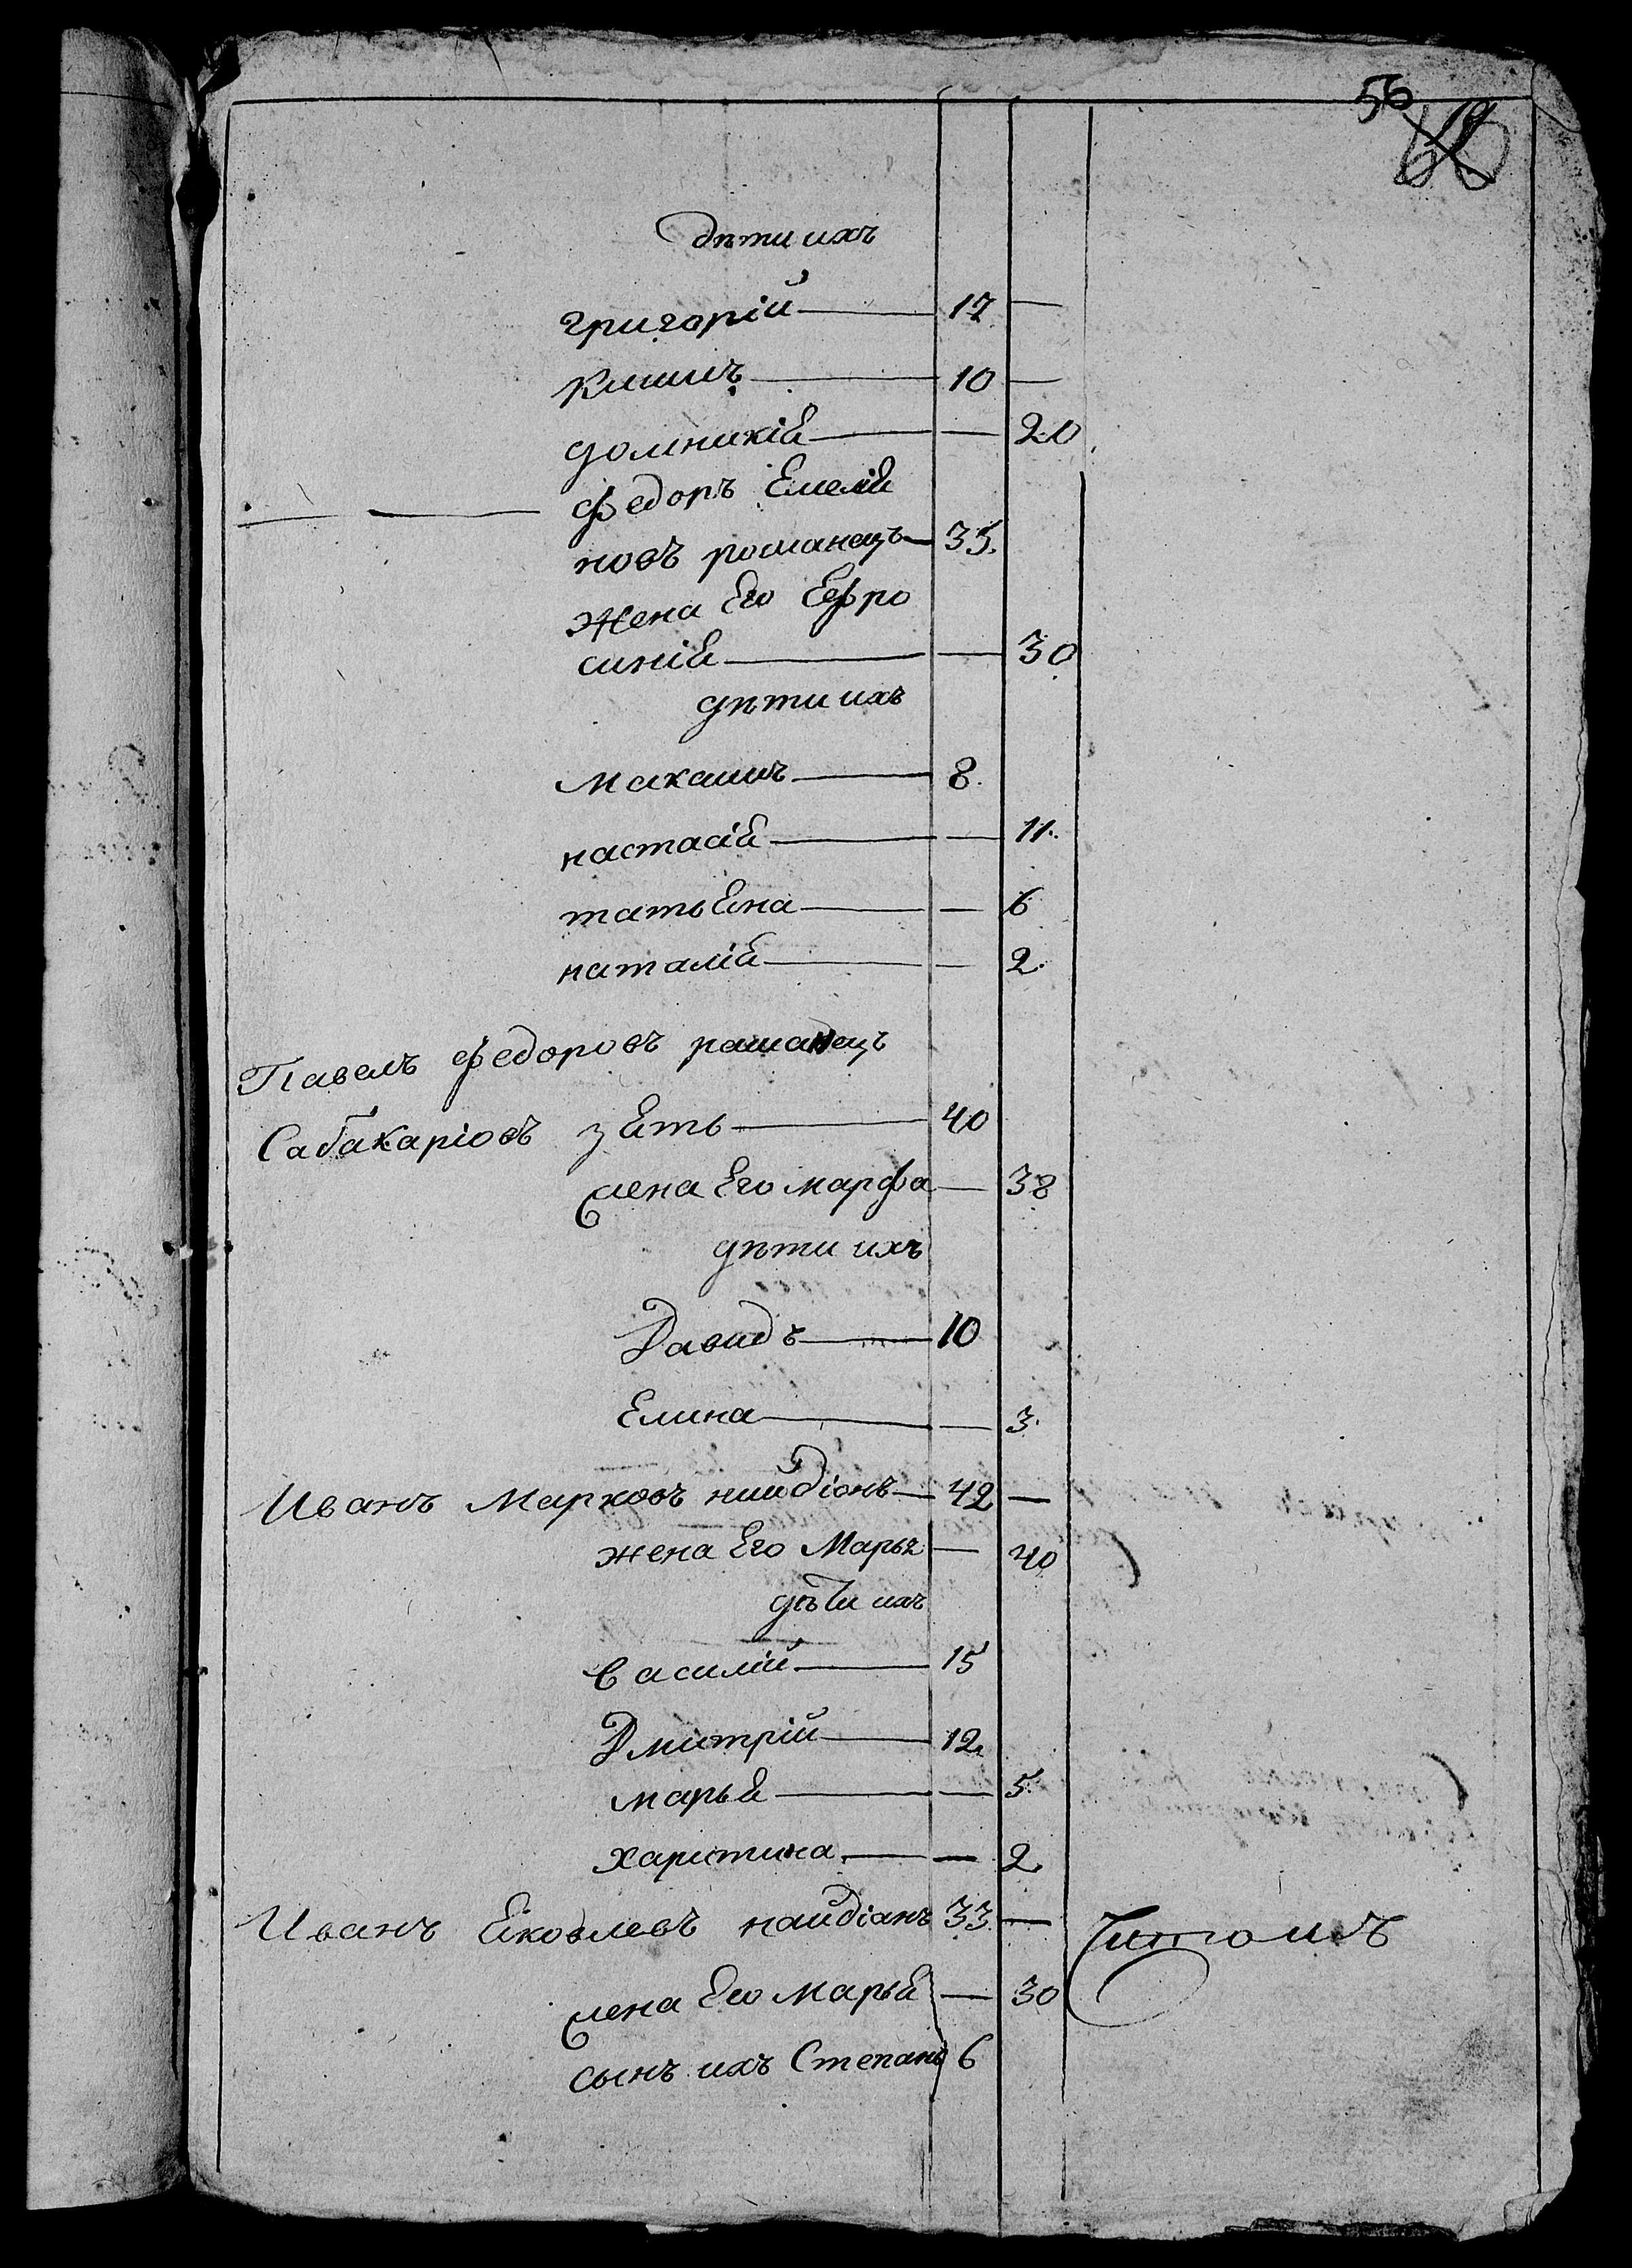 56
дѣти ихъ
григорій — 17 —
Климъ — 10 —
домникіѧ — — 20
федоръ Емелiѧ
новъ романецъ — 35.
жена Его Ефро
синіѧ — — 30
дѣти ихъ
Макаимъ — 8.
настасіѧ — — 11.
татьѧна — — 6
наталіѧ — — 2.
Павелъ федоровъ раманецъ
Сабакаріовъ зѧть — 40
жена Его марфа — 38
дѣти ихъ
Давидъ — 10
Елина — — 3.
Иванъ Марковъ найдіонъ — 42 —
жена Его Марьѧ — 40
дѣти ихъ
Василій — 15
Дмитрій — 12
марьѧ — — 5.
харитина — — 2
Иванъ Ѧковлевъ найдіанъ 33 —
жена Его Марьѧ — 30
сынъ ихъ Степанъ 6